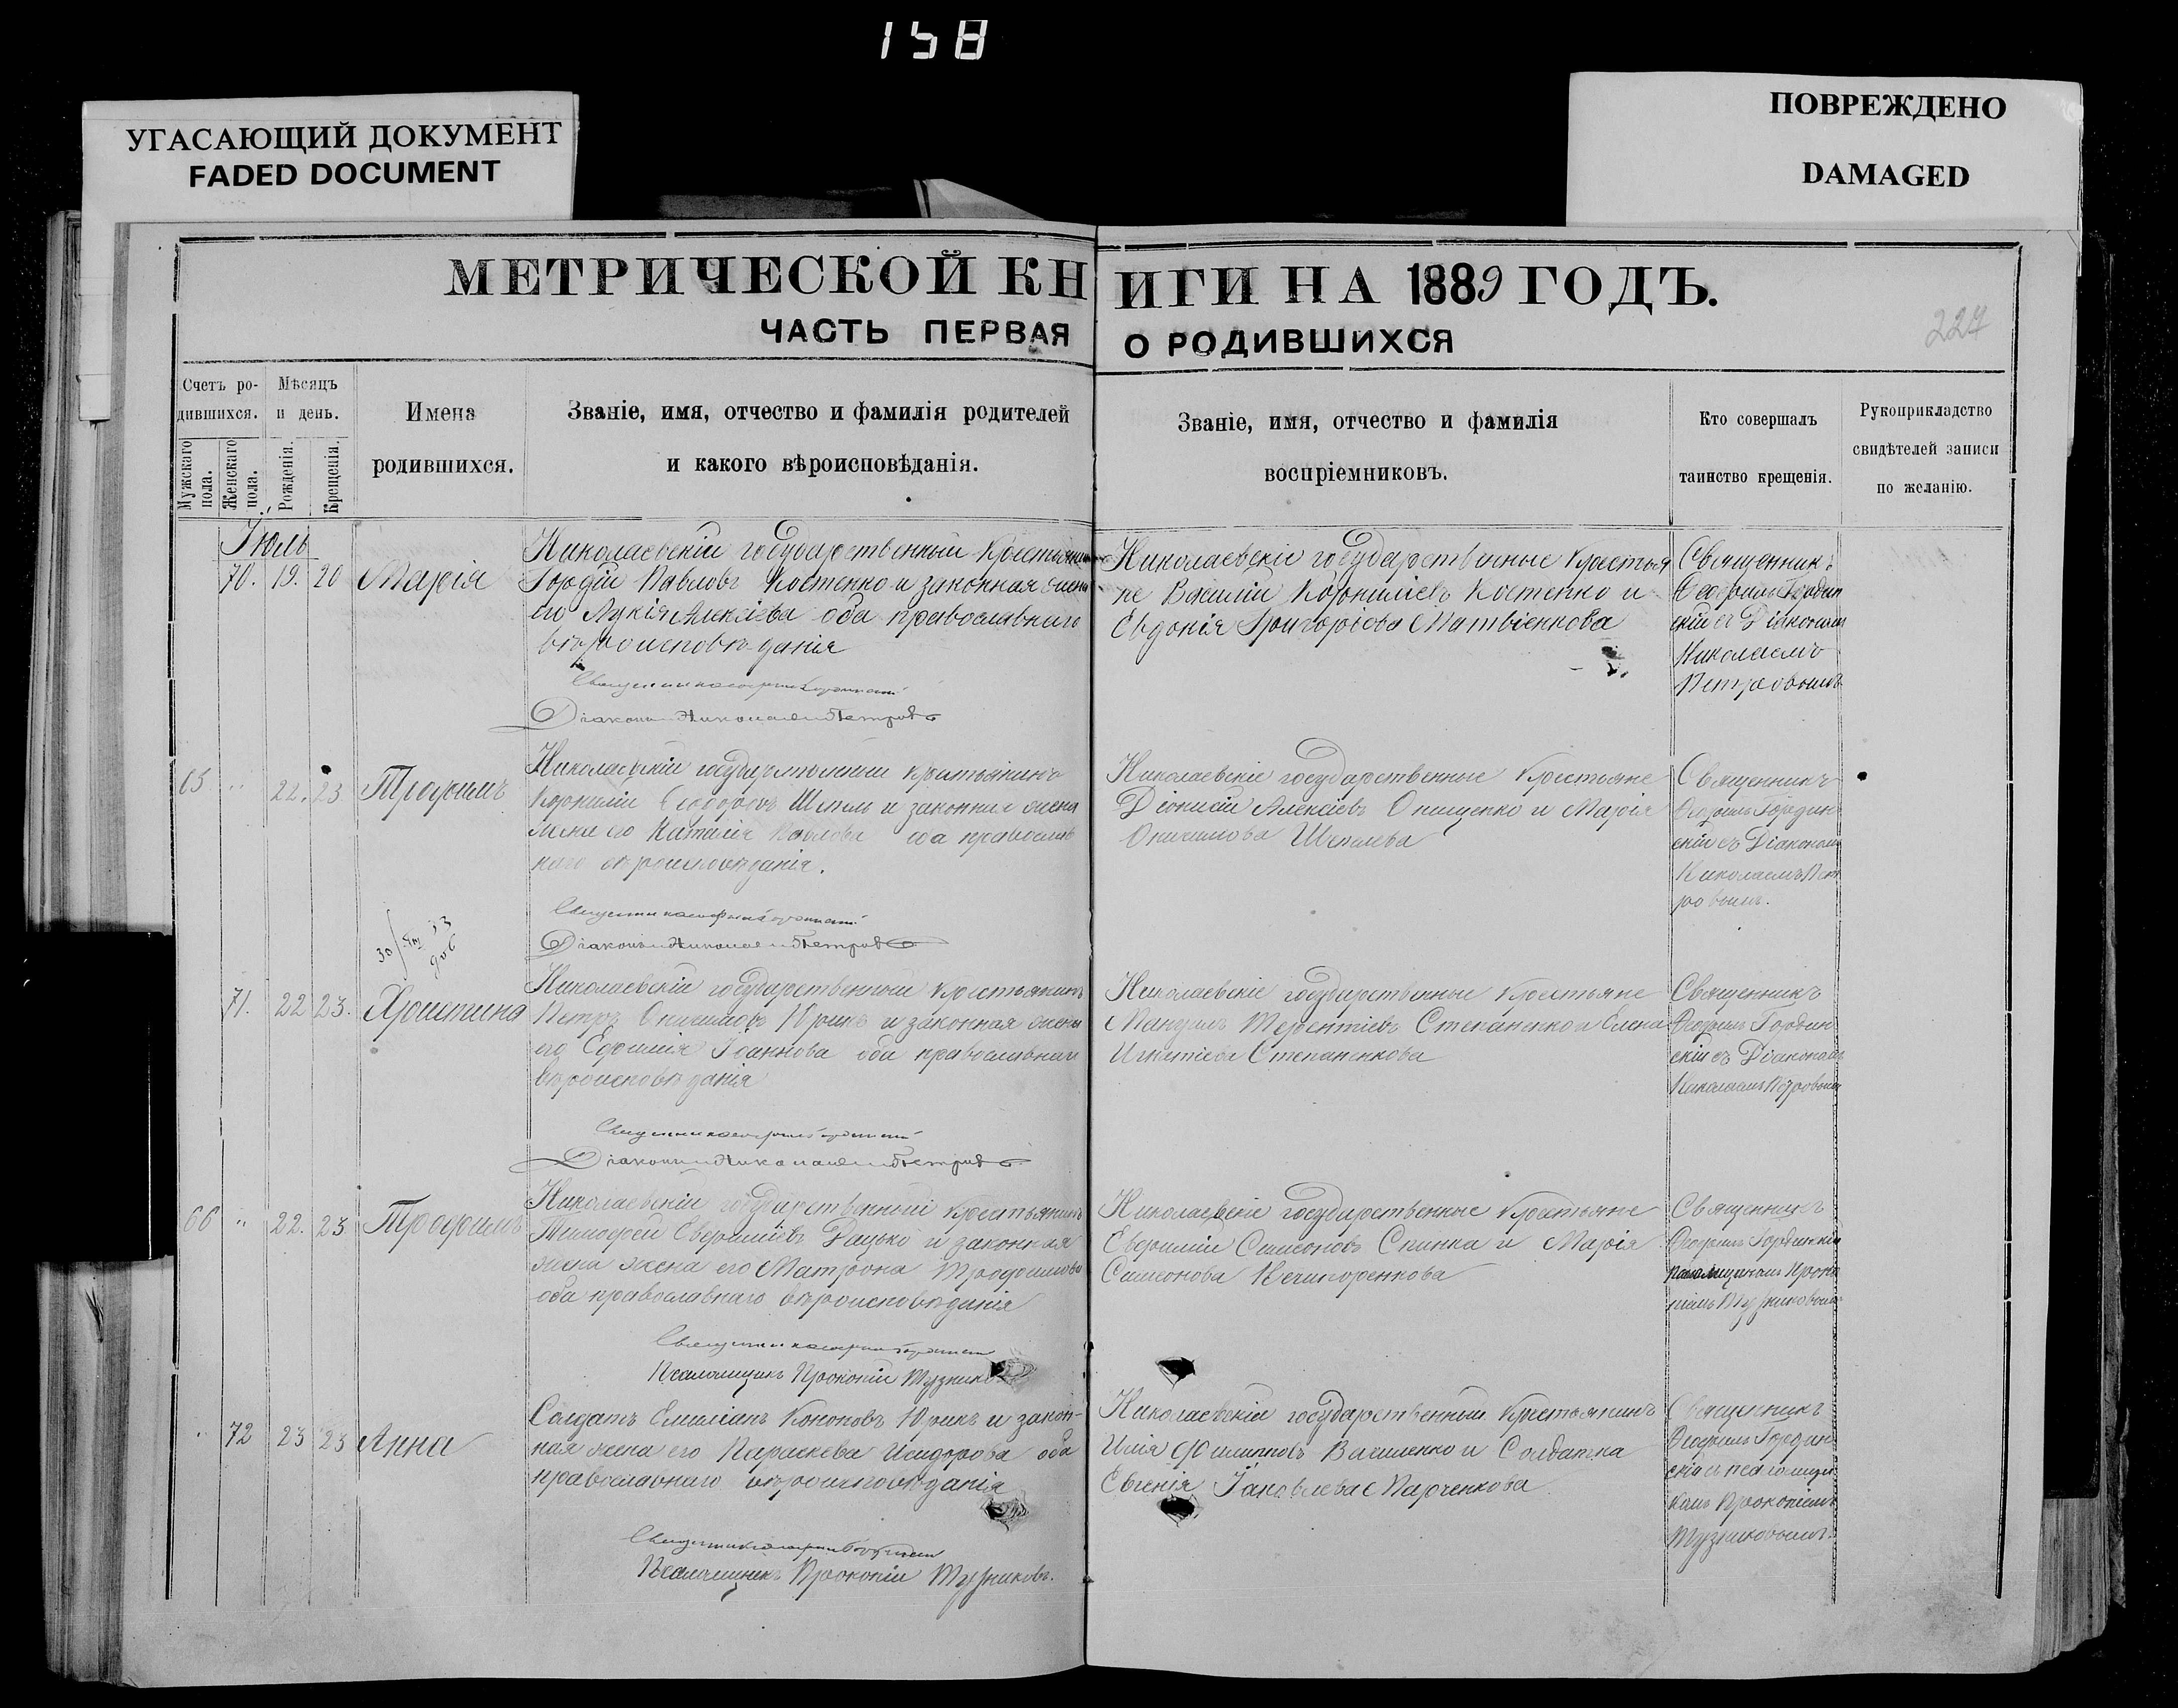 158
УГАСАЮЩИЙ ДОКУМЕНТ
FADED DOCUMENT
ПОВРЕЖДЕНО
DAMAGED
МЕТРИЧЕСКОЙ КНИГИ НА 1889 ГОДЪ.
ЧАСТЬ ПЕРВАЯ О РОДИВШИХСЯ
227
Счетъ ро-
дившихся.
Мужскаго пола.
Женскаго пола.
Мѣсяцъ
и день.
Рожденія.
Крещенія.
Имена
родившихся.
Званіе, имя, отчество и фамилія родителей
и какого вѣроисповѣданія.
Званіе, имя, отчество и фамилія
воспріемниковъ.
Кто совершалъ
таинство крещенія.
Рукоприкладство
свидѣтелей записи
по желанію.
Іюль
70. 19. 20 Марія
Николаевскій государственный крестьянинъ
Гордій Павловъ Костенко и законная жена
его Лукія Алексѣева оба православнаго
вѣроисповѣданія
Діаконъ Николай Петровъ
Николаевскіе государственные крестья
не Василій Корниліевъ Костенко и
Евдокія Григоріева Матвіенкова
Священникъ
скій съ Діакономъ
Николаемъ
Петровымъ
65 " 22. 23 Трофимъ
Николаевскій государственный крестьянинъ
Корнилій Ѳеодоровъ Шепель и законная жена
жена его Наталія Павлова оба православ
наго вѣроисповѣданія.
Діаконъ Николай Петровъ
Николаевскіе государственные крестьяне
Діонисій Алексіевъ Онищенко и Марія
Онисимова Шепелева
Священникъ
скій съ Діакономъ
Николаемъ Пет
ровымъ.
71. 22 23. Христина
Николаевскій государственный крестьянинъ
Петръ Онисимовъ Юрикъ и законная жена
его Евфимія Іоаннова оба православнаго
вѣроисповѣданія
Діаконъ Николай Петровъ
Николаевскіе государственные крестьяне
Терентіевъ Степаненко и Елена
Игнатіева Степаненкова
Священникъ
скій съ Діакономъ
Николаемъ Петровымъ
66 " 22. 23 Трофимъ
Николаевскій государственный крестьянинъ
Тимофей Евфиміевъ Дацько и законная
жена жена его Матрона Трофимова
оба православнаго вѣроисповѣданія
Псаломщикъ Прокопій Тузниковъ
Николаевскіе государственные крестьяне
Евфимій Симеоновъ Спинка и Марія
Симеонова Нечипоренкова
Священникъ
72 23 23 Анна
Солдатъ Емиліанъ Кононовъ Юрикъ и закон-
ная жена его Параскева Исидорова оба
православнаго вѣроисповѣданія
Псаломщикъ Прокопій Тузниковъ.
Николаевскій государственный крестьянинъ
Илія Филипповъ Василенко и Солдатка
Евгенія Іаковлева Марченкова
Священникъ
скій съ псаломщи
комъ Прокопіемъ
Тузниковымъ.